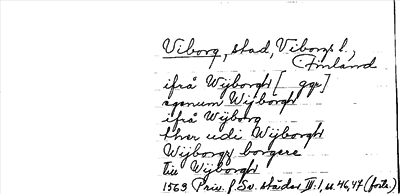 Viborg, stad, Viborgs l.,
Finland
ifrå Wijborgh [ ggr]
agenum Wijborgh
ifrå Wijborg
ther udi Wijborgh
Wijborgz borgere
till Wijborgh
1569 Priv. f. Sv. städer III:1, s. 46, 47 (forts.)